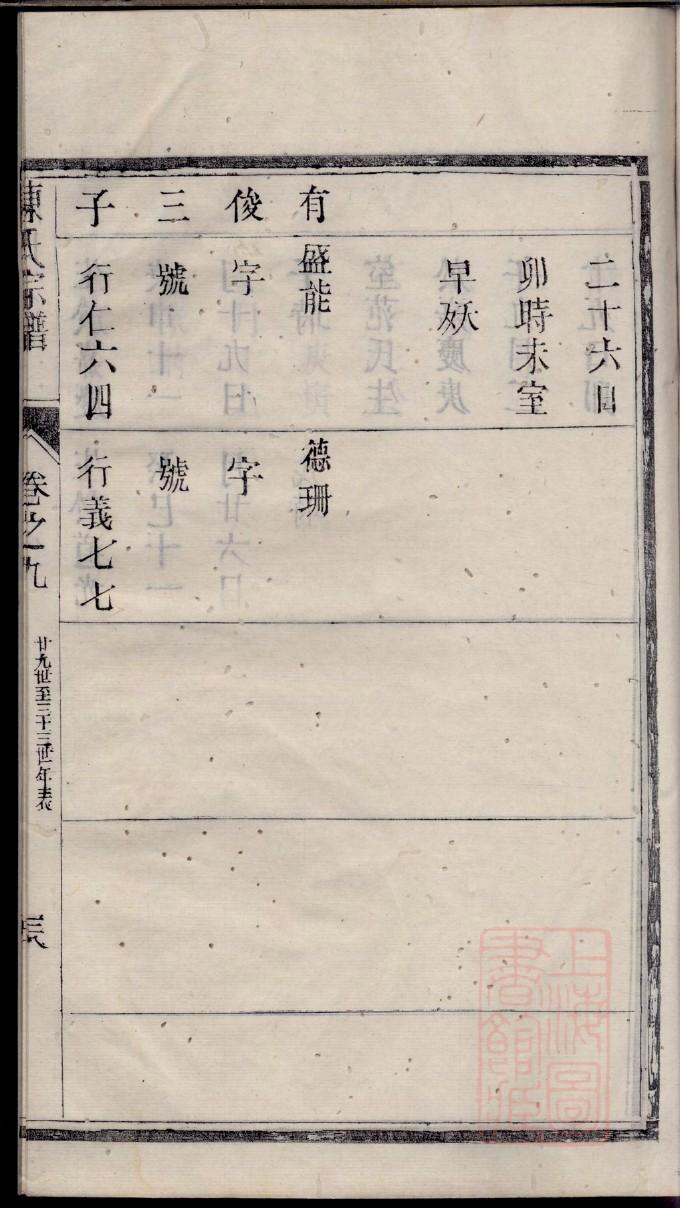 二十六日
卯時未室
早殀
有
俊
三
子
盛能
字
號
行仁六四
德珊
字
號
行義七七
陳氏宗譜
卷之九
廿九世至三十三世年表
上海圖
書館藏